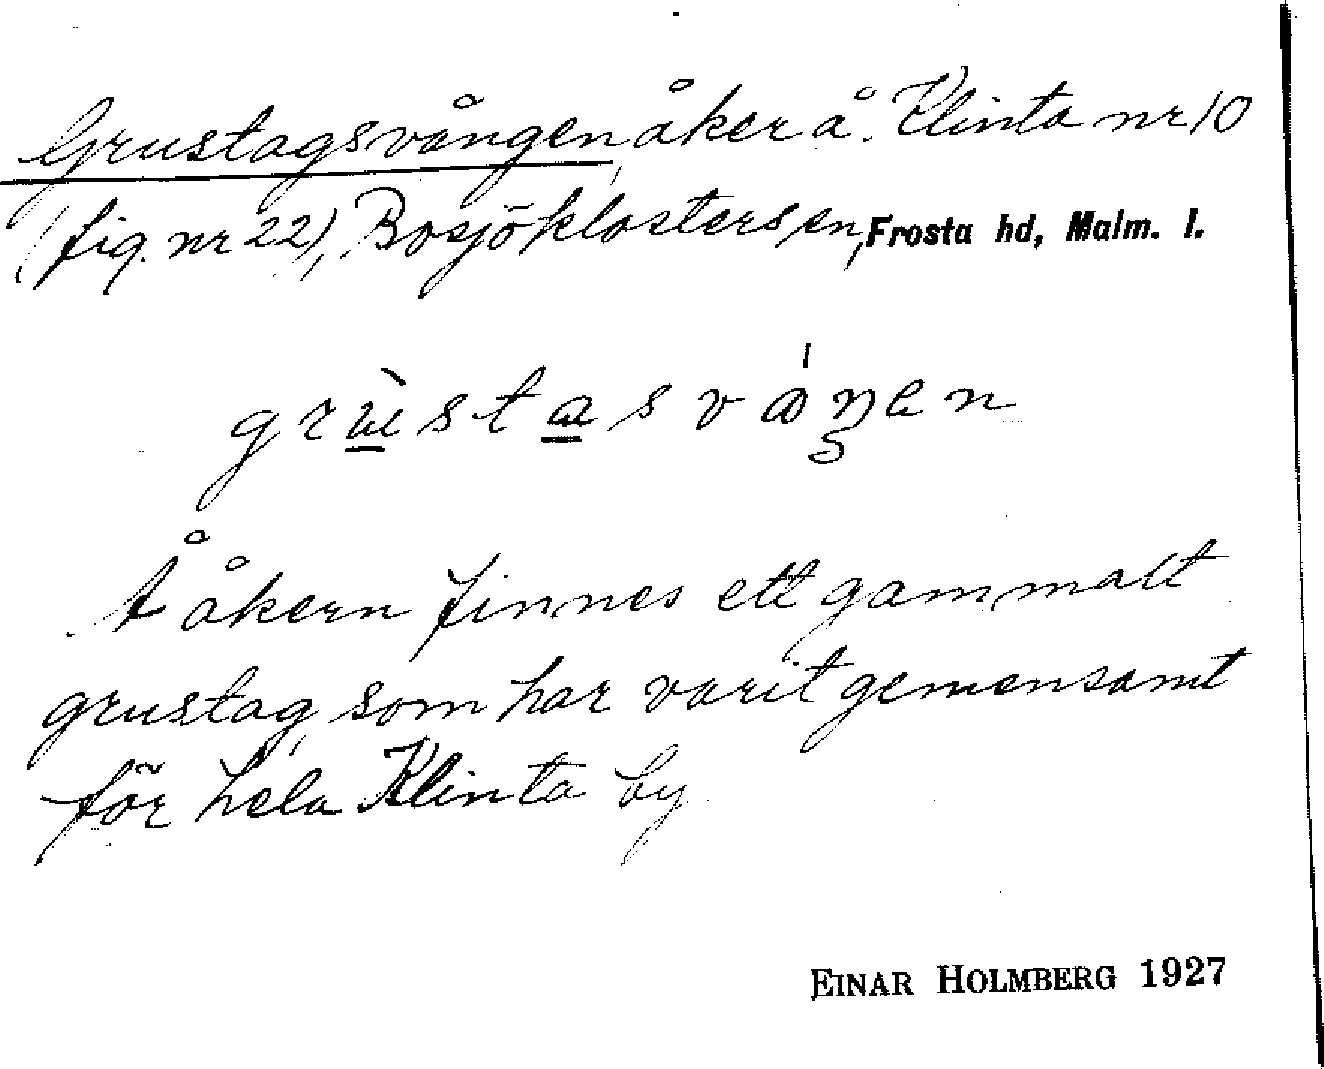 Grustagsvången, åker å Klinta nr 10
(fig. nr 22), Bosjöklosters sn, Frosta hd, Malm. l.
Å åkern finnes ett gammalt
grustag, som har varit gemensamt
för hela Klinta by
EINAR HOLMBERG 1927